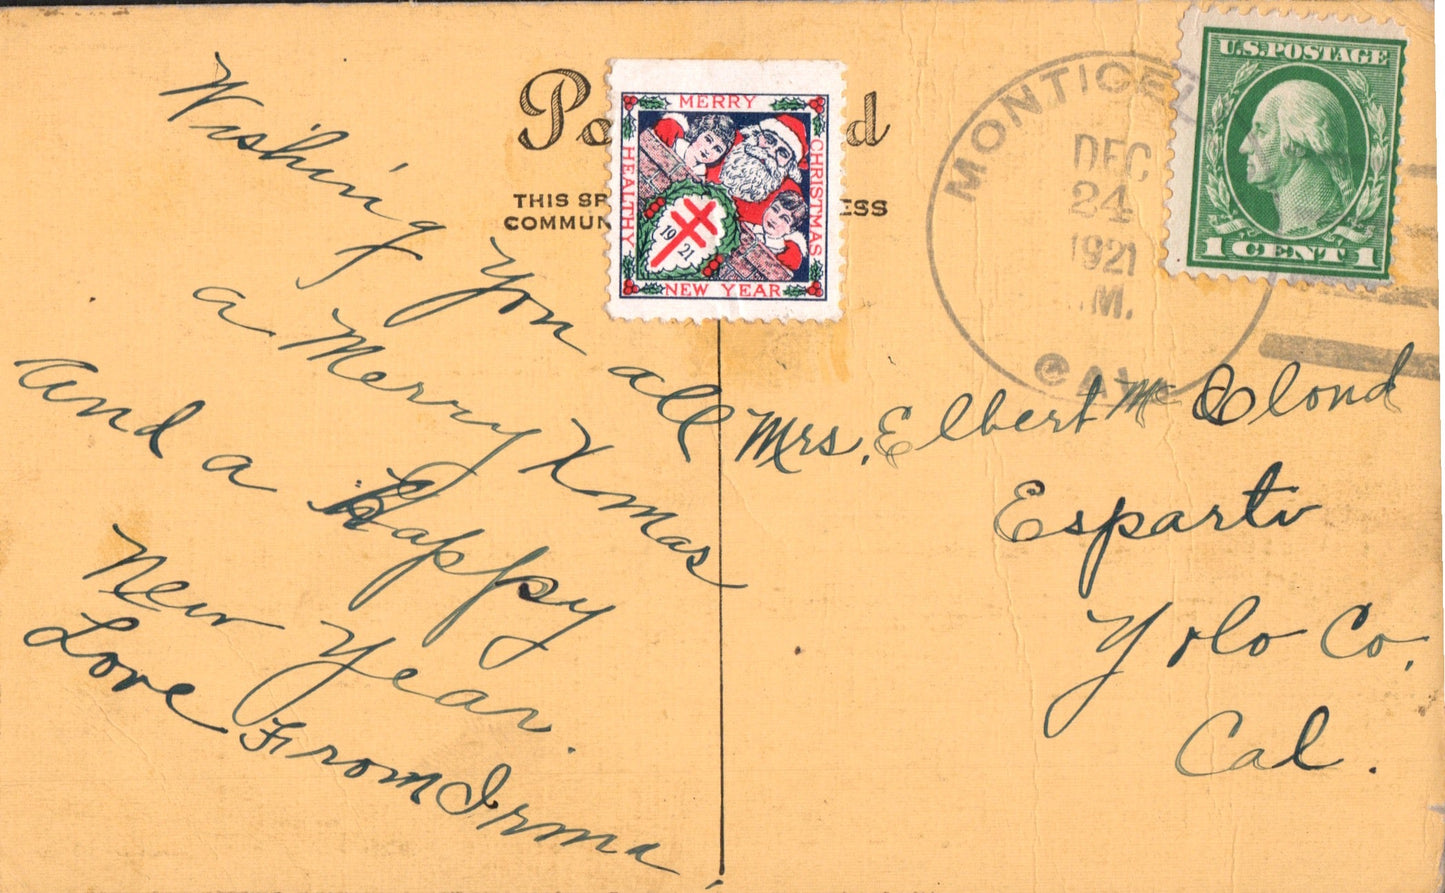 Po d
THIS SP ESS
COMMUN
MERRY
CHRISTMAS
HEALTHY
NEW YEAR
1921
MONTICEL
DEC
24
1921
M.
CAL.
U.S. POSTAGE
1 CENT 1
Wishing you all
a Merry Xmas
and a Happy
New Year.
Love From Irma
Mrs. Elbert Mc Clond
Esparto
Yolo Co.
Cal.